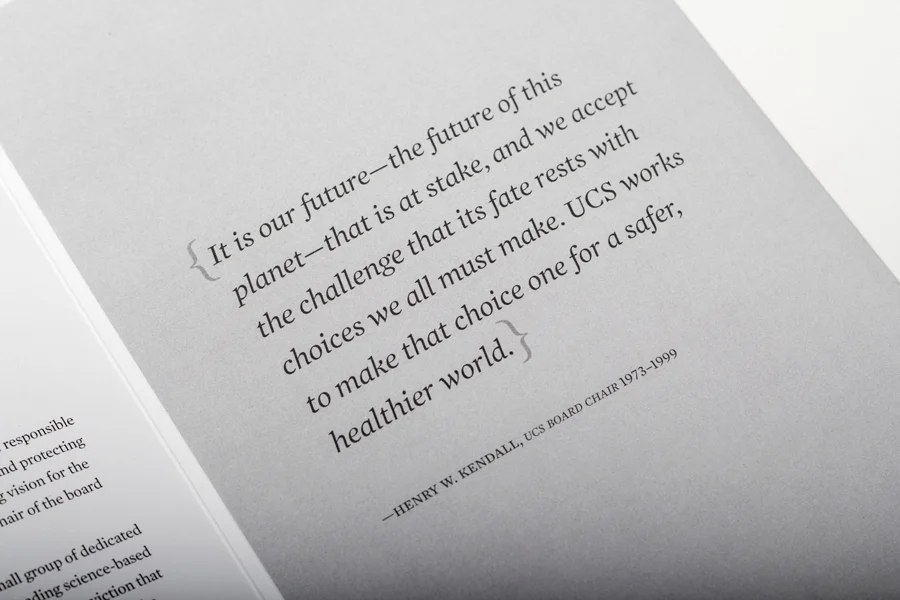 { It is our future—the future of this
planet—that is at stake, and we accept
the challenge that its fate rests with
choices we all must make. UCS works
to make that choice one for a safer,
healthier world. }
—HENRY W. KENDALL, UCS BOARD CHAIR 1973–1999
responsible
protecting
vision for the
of the board
group of dedicated
science-based
that